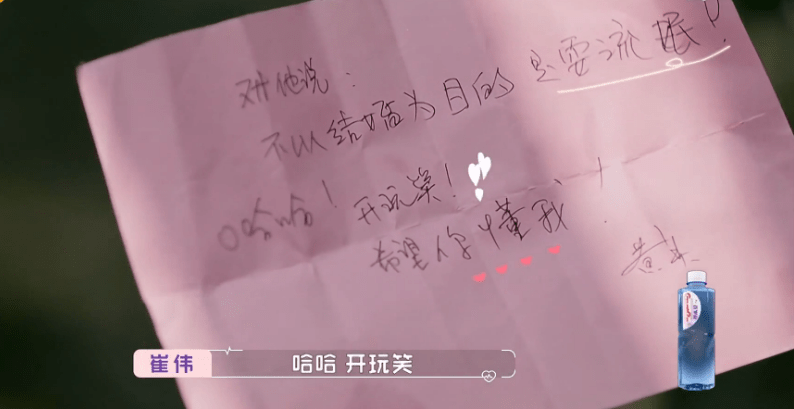 对他说:
不以结婚为目的是耍流氓!
哈哈!开玩笑!
希望你懂我!
崔伟
哈哈 开玩笑